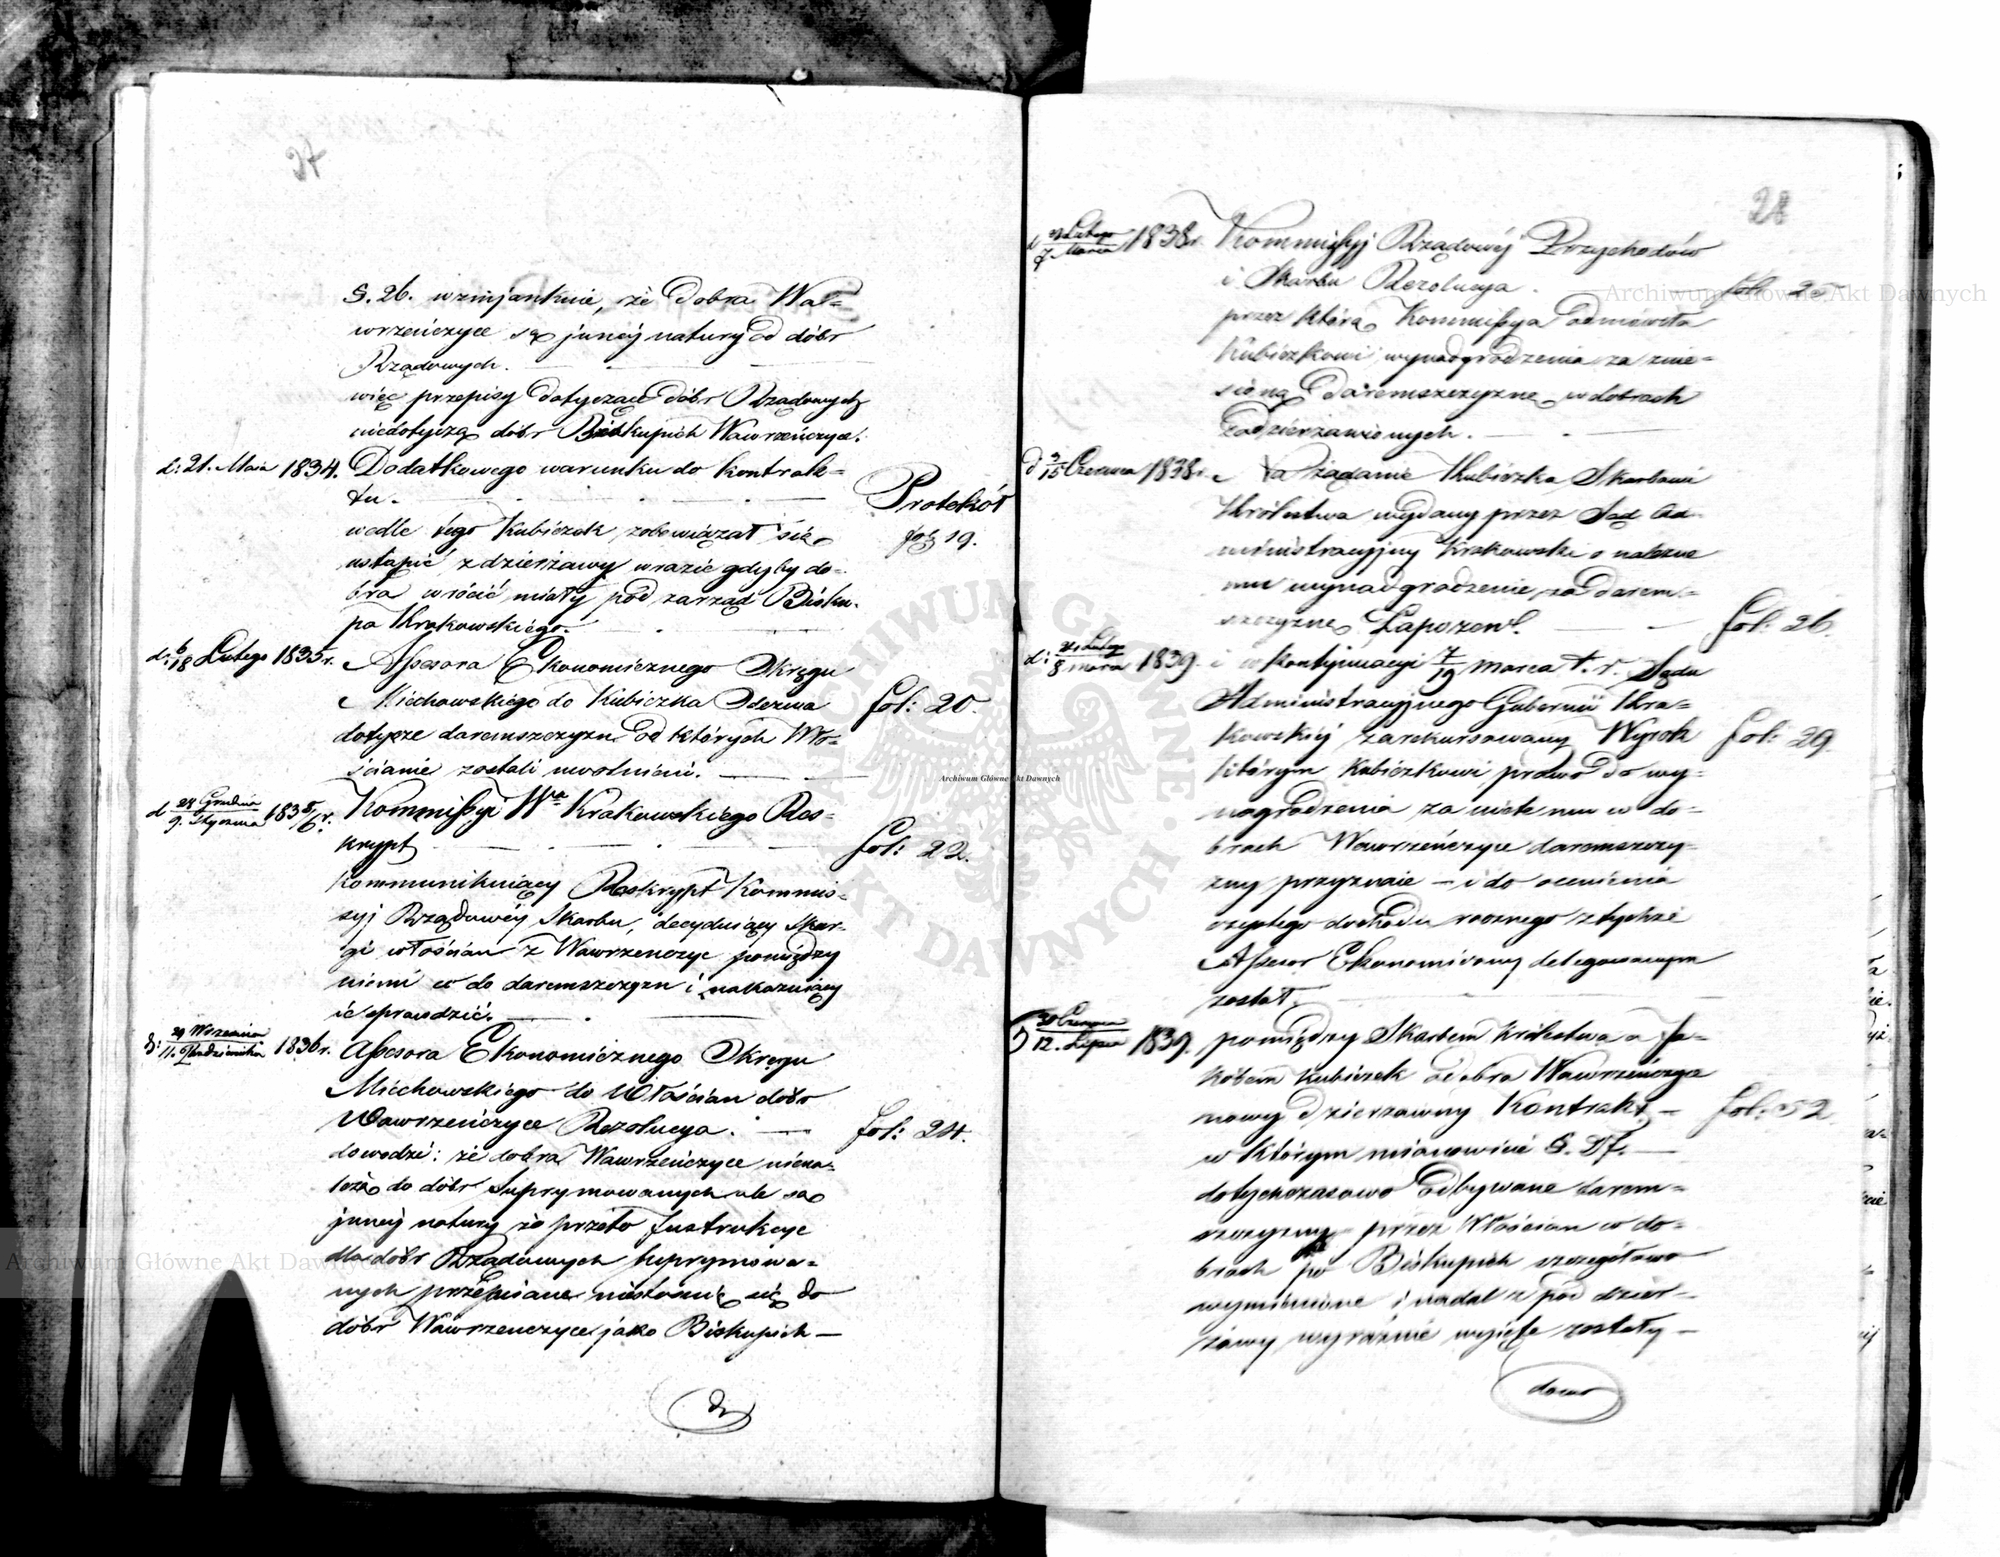 27
§. 26. wzmjankuie, że Dobra Wa-
wrzeńczyce są jnnéj natury od dóbr
Rządowych.
więc przepisy dotyczące dóbr Rządowych
niedotyczą dóbr Biskupich Wawrzeńczyce.
d: 21. Maia 1834. Dodatkowego warunku do kontrak-
tu.
Protokół
fol: 19.
wedle tego Kubiczek zobowiązał się
ustąpić z dzierżawy w razie gdyby do-
bra wrócić miały pod zarząd Bisku-
pa Krakowskiego.
d: 6/18 Lutego 1835 r. Assesora Ekonomicznego Okręgu
Miechowskiego do Kubiczka Odezwa
fol: 20.
dotycze daremszczyzn od których Wło-
ścianie zostali uwolnieni.
d 28 Grudnia/9. Stycznia 1835/6 r. Kommissyi Wa Krakowskiego Res-
krypt
fol: 22.
kommunikuiący Reskrypt Kommis-
syj Rządowéj Skarbu, decyduiący Skar-
gi włościan z Wawrzenczyc pomiędzy
niemi co do daremszczyzn i nakazuiący
ie sprawdzić.
d: 29 Wrzesnia/11. Pazdziernika 1836 r. Assesora Ekonomicznego Okręgu
Miechowskiego do Włościan dóbr
Wawrzeńczyce Rezolucya.
fol: 24.
dowodzi: że dobra Wawrzeńczyce niena-
leżą do dóbr Suprymowanych ale są
jnnéj natury że przeto Jnstrukcye
dla dóbr Rządowych suprymowa-
nych przepisane niestosuią się do
dóbr Wawrzenczyce jako Biskupich —
28
d 23 Lutego/7 Marca 1838 r. Kommissyj Rządowéj Przychodów
i Skarbu Rezolucya.
fol: 25
przez którą Kommissya odmówiła
Kubiczkowi wynadgrodzenia za znie-
sioną Daremszczyznę w dobrach
zadzierżawionych.
d 3/15 Czerwca 1838 r. Na Żądanie Kubiczka Skarbowi
Królestwa wydany przez Sąd Ad-
ministracyjny Krakowski o należne
mu wynadgrodzenie za Darem-
szczyznę Zapozew.
fol: 26.
d: 24 Lutego/8 Marca 1839. i w kontynuacyi 7/19 Marca t. r. Sądu
Administracyjnego Gubernii Kra-
kowskiéj zarekursowany Wyrok
fol: 29
którym Kubiczkowi prawo do wy-
nagrodzenia za niektóre w do-
brach Wawrzeńczyce daremszczy-
zny przyznaie — i do ocenienia
czystego dochodu rocznego z tychże
Assesor Ekonomiczny delegowanym
został.
30 Czerwca/12. Lipca 1839. pomiędzy Skarbem Królestwa a Ja-
kóbem Kubiczek o dobra Wawrzeńczyce
nowy Dzierżawny Kontrakt —
fol: 52
w którym mianowicie §.
dotychczasowo Odbywane darem-
szczyzny przez Włościan w do-
brach po Biskupich szczegółowo
wymienione i nadal z pod dzier-
żawy wyraźnie wyięte zostały —
Archiwum Główne Akt Dawnych
Archiwum Główne Akt Dawnych
Archiwum Główne Akt Dawnych
ARCHIWUM GŁÓWNE AKT DAWNYCH